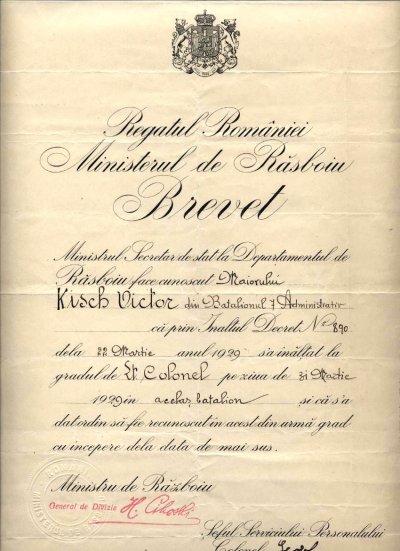 Regatul României
Ministerul de Răsboiu
Brevet
Ministrul Secretar de stat la Departamentul de
Răsboiu face cunoscut Maiorului
Kisch Victor din Batalionul 7 Administrativ
că prin Inaltul Decret. No 890
dela 22 Martie anul 1929 s'a inălţat la
gradul de Lt. Colonel pe ziua de 31 Martie
1929 in acelaş batalion şi că s'a
dat ordin să fie recunoscut in acest din urmă grad
cu incepere dela data de mai sus.
Ministru de Război
General de Divizie H. Cihoski
Şeful Serviciului Personalului
Colonel